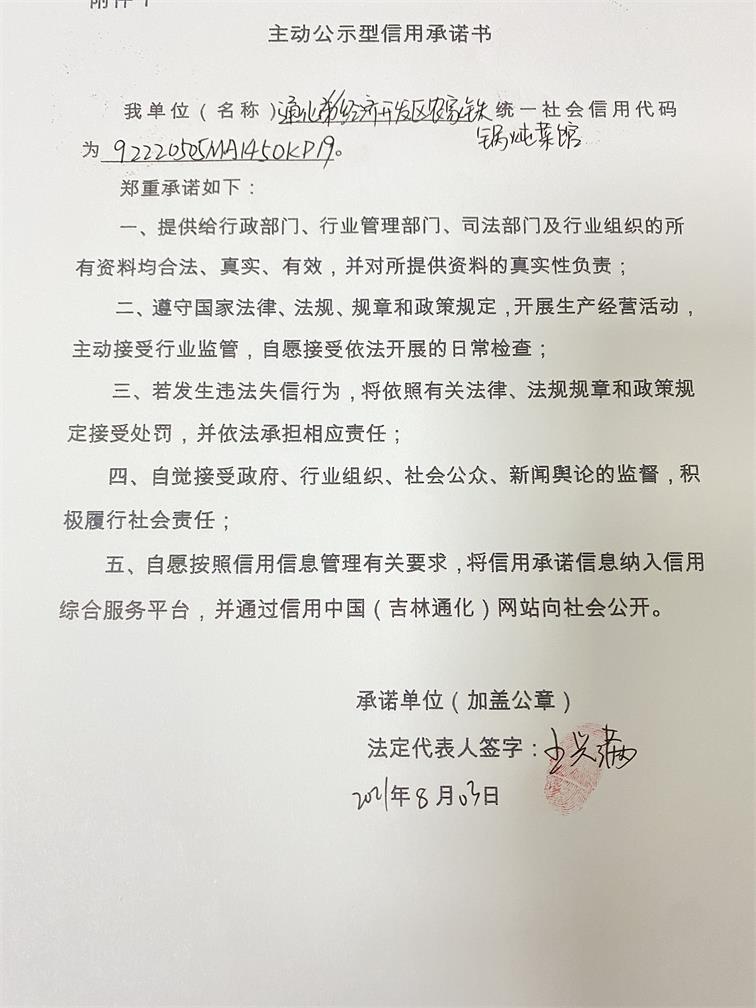 附件1
主动公示型信用承诺书
我单位（名称）通化市经济开发区农家铁统一社会信用代码
锅炖菜馆
为92220505MA1450KP19。
郑重承诺如下：
一、提供给行政部门、行业管理部门、司法部门及行业组织的所
有资料均合法、真实、有效，并对所提供资料的真实性负责；
二、遵守国家法律、法规、规章和政策规定，开展生产经营活动，
主动接受行业监管，自愿接受依法开展的日常检查；
三、若发生违法失信行为，将依照有关法律、法规规章和政策规
定接受处罚，并依法承担相应责任；
四、自觉接受政府、行业组织、社会公众、新闻舆论的监督，积
极履行社会责任；
五、自愿按照信用信息管理有关要求，将信用承诺信息纳入信用
综合服务平台，并通过信用中国（吉林通化）网站向社会公开。
承诺单位（加盖公章）
法定代表人签字：王兴满
2021年8月03日